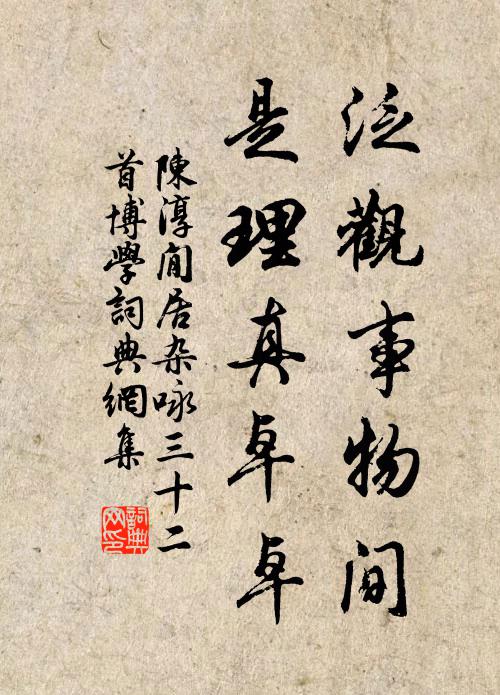 泛觀事物间
是理真卓卓
陳淳閒居杂咏三十二
首博學詞典網集
詞典网印